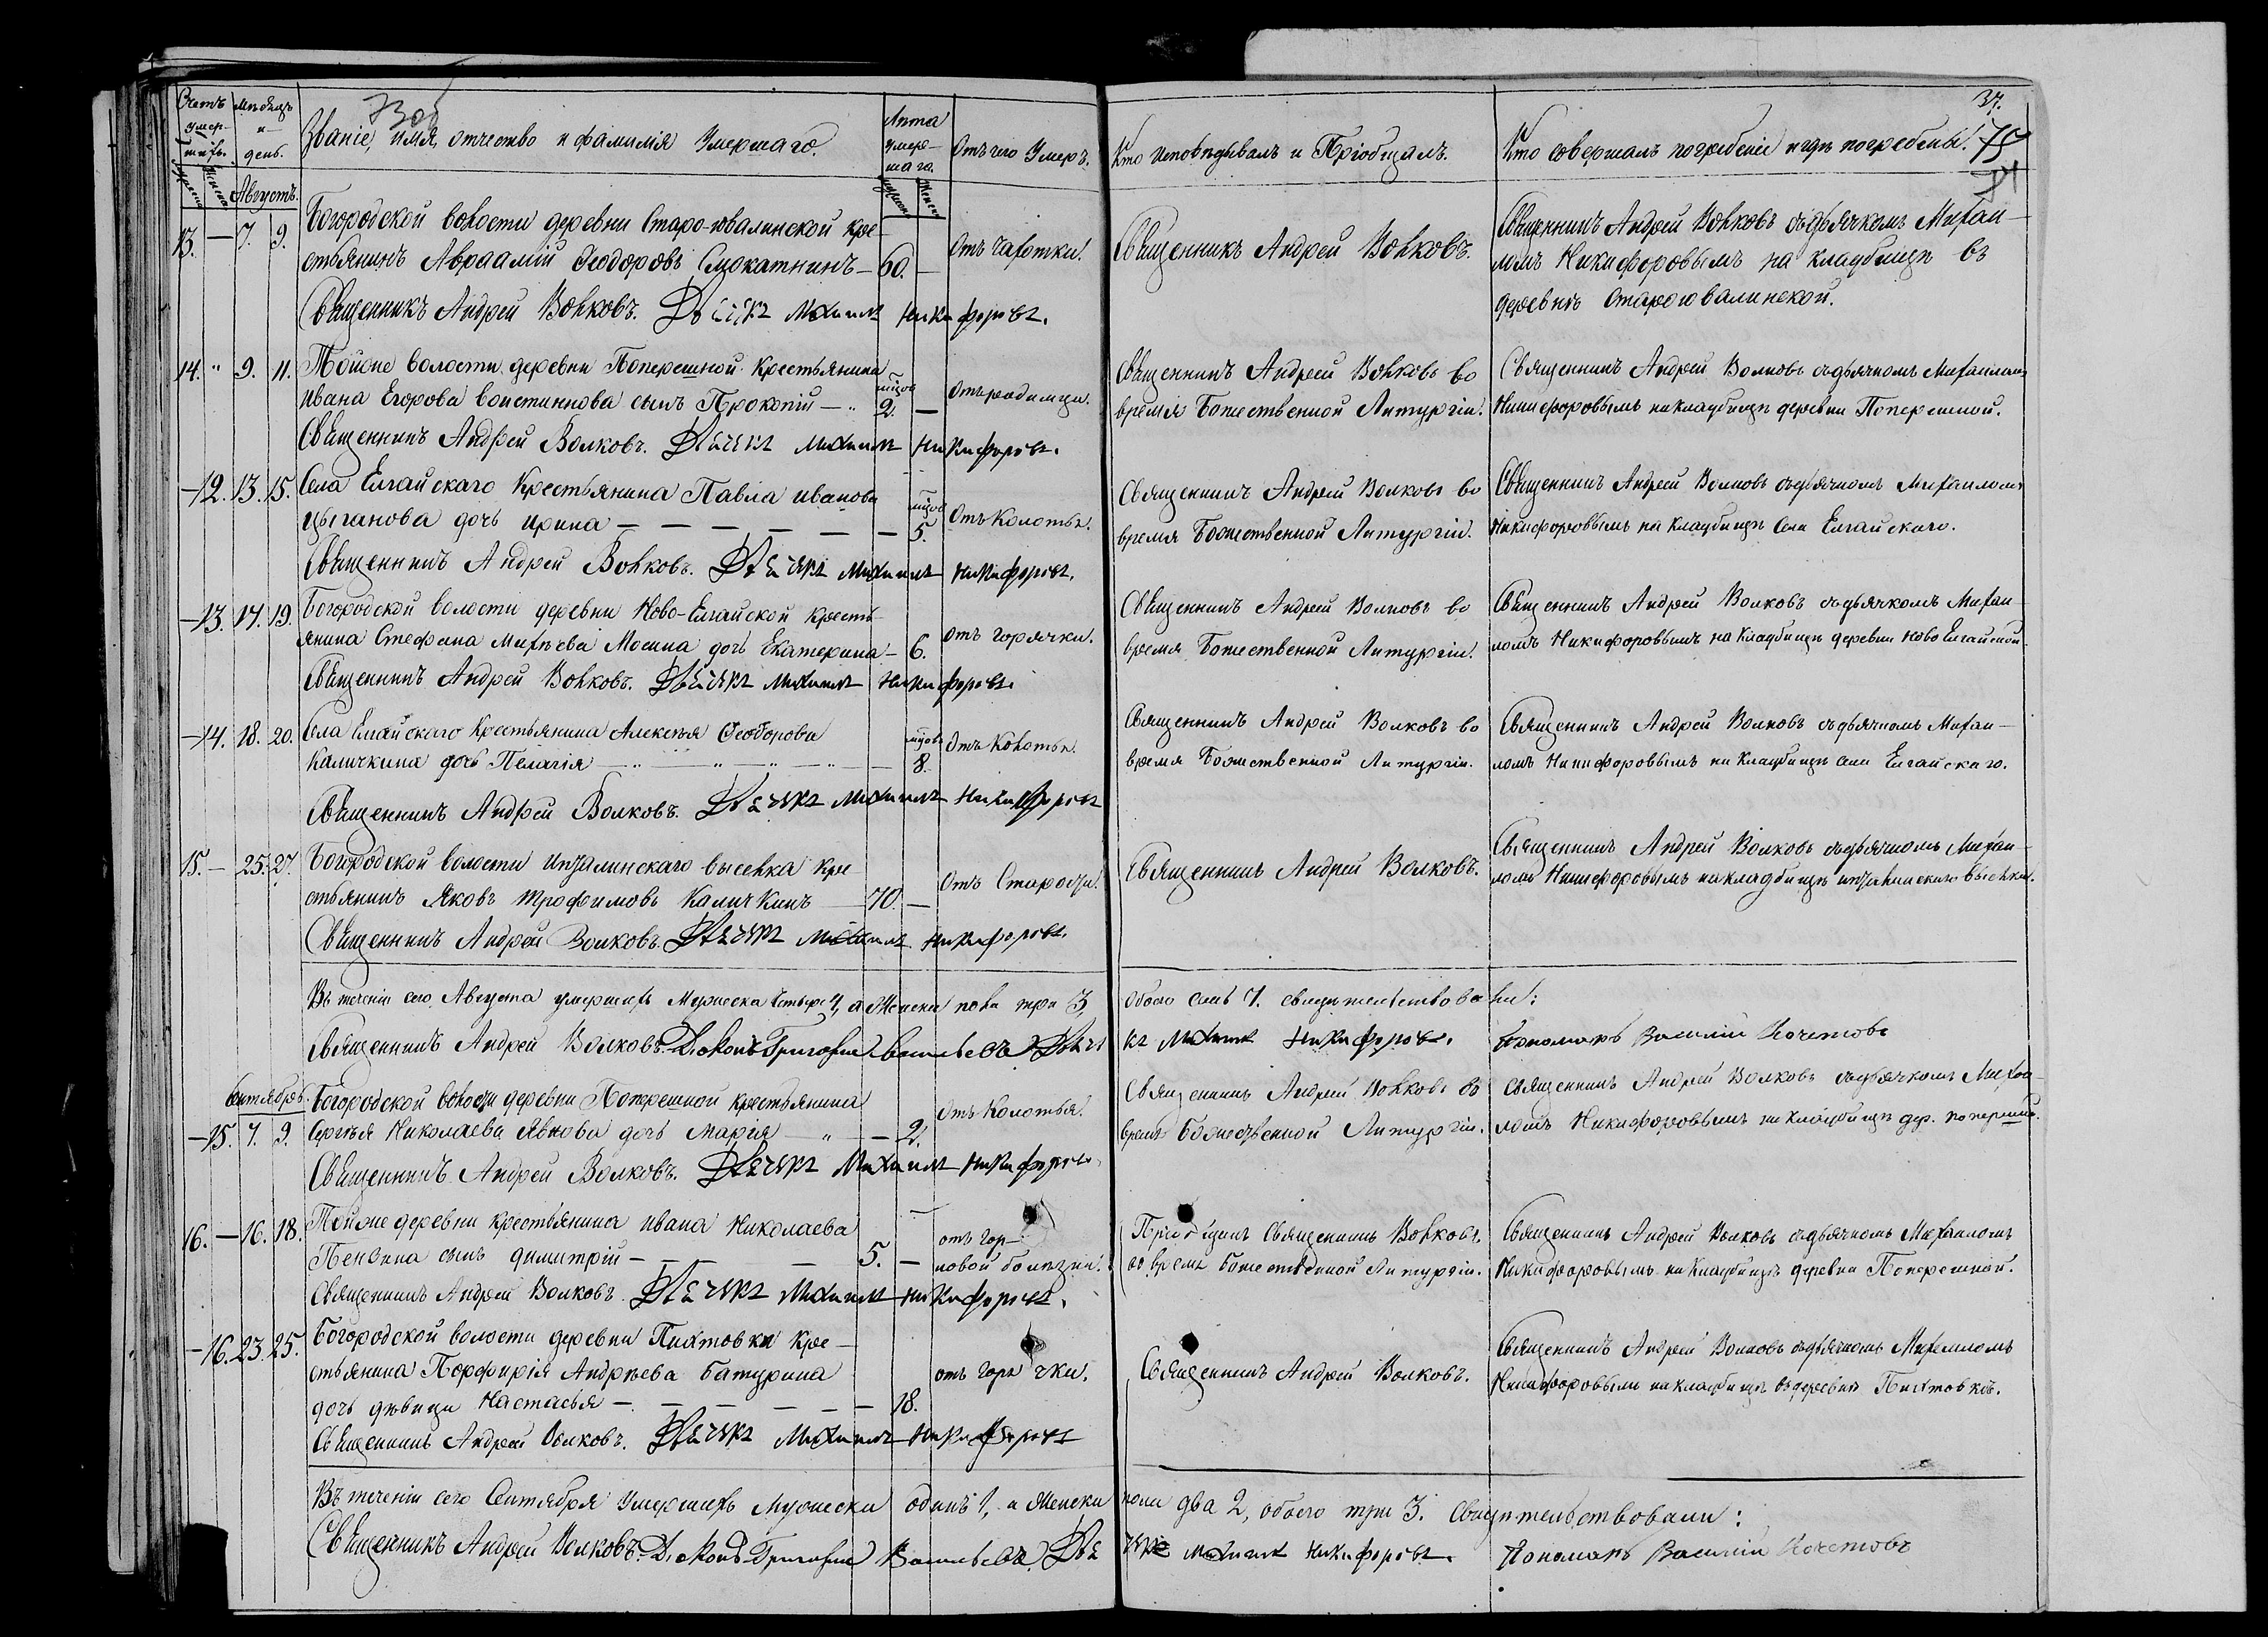 Счетъ умер-шихъ. Мѣсяцъ и день. Званіе, имя, отчество и фамилія Умершаго. Лѣта умер-шаго. Отъ чего Умеръ. Кто исповѣдывалъ и Пріобщалъ. Кто совершалъ погребеніе и гдѣ погребены.
37.
75
Августъ.
13. — 7. 9. Богородской волости деревни Старо-ювалинской кре-
стьянинъ Авраамій Ѳеодоровъ — 60. — Отъ чахотки. Священникъ Андрей Волковъ.
Священникъ Андрей Волковъ. Дьячекъ Михаилъ Никифоровъ.
Священникъ Андрей Волковъ съ дьячкомъ Михаи-
ломъ Никифоровымъ на кладбищѣ въ
деревнѣ Староювалинской.
14. „ 9. 11. Тойже волости деревни Поперешной Крестьянина
Ивана Егорова воистиннова сынъ Прокопій — 2. — Отъ родимца.
Священникъ Андрей Волковъ. Дьячекъ Михаилъ Никифоровъ.
Священникъ Андрей Волковъ во
время Божественной Литургіи.
Священникъ Андрей Волковъ съ дьячкомъ Михаиломъ
Никифоровымъ на кладбищѣ деревни Поперешной.
— 12. 13. 15. Села Елгайскаго Крестьянина Павла Иванова
Цыганова дочь Ирина — — — — 5. Отъ Колотья.
Священникъ Андрей Волковъ. Дьячекъ Михаилъ Никифоровъ.
Священникъ Андрей Волковъ во
время Божественной Литургіи.
Священникъ Андрей Волковъ съ дьячкомъ Михаиломъ
Никифоровымъ на кладбищѣ Села Елгайскаго.
— 13. 17. 19. Богородской волости деревни Ново-Елгайской Кресть-
янина Стефана Михѣева Мосина дочь Екатерина — 6. Отъ горячки.
Священникъ Андрей Волковъ. Дьячекъ Михаилъ Никифоровъ.
Священникъ Андрей Волковъ во
время Божественной Литургіи.
Священникъ Андрей Волковъ съ дьячкомъ Михаи-
ломъ Никифоровымъ на кладбищѣ деревни Ново Елгайской.
— 14. 18. 20. Села Елгайскаго Крестьянина Алексѣя Ѳеодорова
Каличкина дочь Пелагія — 8. Отъ Колотья.
Священникъ Андрей Волковъ. Дьячекъ Михаилъ Никифоровъ
Священникъ Андрей Волковъ во
время Божественной Литургіи.
Священникъ Андрей Волковъ съ дьячкомъ Михаи-
ломъ Никифоровымъ на кладбищѣ села Елгайскаго.
15. — 25. 27. Богородской волости высевка кре-
стьянинъ Яковъ Трофимовъ Каличкинъ — 70. — Отъ Старости. Священникъ Андрей Волковъ.
Священникъ Андрей Волковъ. Дьячекъ Михаилъ Никифоровъ.
Священникъ Андрей Волковъ съ дьячкомъ Михаи-
ломъ Никифоровымъ на кладбищѣ высевка.
Въ теченіи сего Августа умершихъ Мужеска четыре 4, а Женска пола три 3, обоего семь 7. свидѣтельствовали:
Священникъ Андрей Волковъ. Діаконъ Григорій Васильевъ. Дьячекъ Михаилъ Никифоровъ. Пономарь Василій Кочетовъ
Сентябрь.
— 15. 7. 9. Богородской волости деревни Поперешной крестьянина
Сергѣя Николаева дочь Марія — „ — 2. Отъ Колотья.
Священникъ Андрей Волковъ. Дьячекъ Михаилъ Никифоровъ.
Священникъ Андрей Волковъ во
время Божественной Литургіи.
Священникъ Андрей Волковъ съ дьячкомъ Михаи-
ломъ Никифоровымъ на кладбищѣ дер. Попереш.
16. — 16. 18. Тойже деревни крестьянина Ивана Николаева
Пензина сынъ Димитрій — 5. — отъ гор-
ловой болѣзни.
Священникъ Андрей Волковъ. Дьячекъ Михаилъ Никифоровъ.
Пріобщилъ Священникъ Волковъ
во время Божественной Литургіи.
Священникъ Андрей Волковъ съ дьячкомъ Михаиломъ
Никифоровымъ на кладбищѣ деревни Поперешной.
— 16. 23. 25. Богородской волости деревни Пихтовки кре-
стьянина Порфирія Андрѣева Батурина
дочь дѣвица Настасья — — — — — 18. отъ горячки. Священникъ Андрей Волковъ.
Священникъ Андрей Волковъ. Дьячекъ Михаилъ Никифоровъ
Священникъ Андрей Волковъ съ дьячкомъ Михаиломъ
Никифоровымъ на кладбищѣ въ деревнѣ Пихтовкѣ.
Въ теченіи сего Сентября умершихъ Мужеска одинъ 1, а Женска пола два 2, обоего три 3. Свидѣтельствовали:
Священникъ Андрей Волковъ. Діаконъ Григорій Васильевъ. Дьячекъ Михаилъ Никифоровъ. Пономарь Василій Кочетовъ